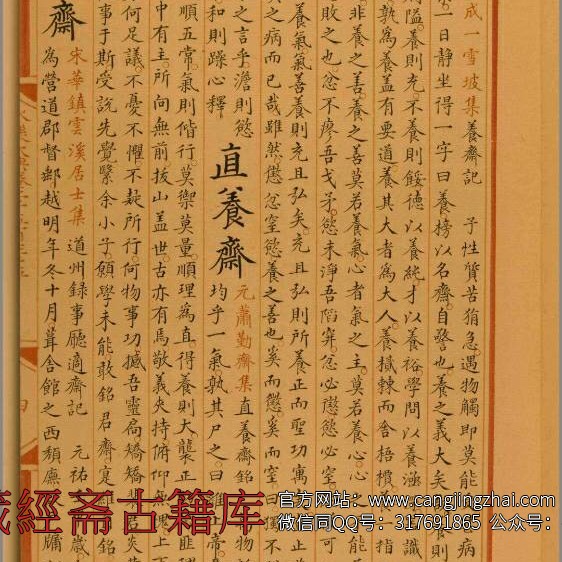 成一雪坡集養齋記 子性質苦狷急遇物觸即莫能病
一日靜坐得一字曰養榜以名齋自警也養之義大矣養則
隘養則充不養則餒德以養純才以養裕學問以養涵識
孰為養蓋有要道養其大者為大人養樲棘而舍梧檟指
非養之善養之善莫若養氣心者氣之主莫若養心心之能
敗之也忿不瘳吾戈矛慾未淨吾陷穽忿必懲慾必窒可
養氣氣善養則充且弘矣充且弘則所養正而聖功寓止
之病而已哉雖然懲忿窒慾養之善也奚而懲奚而窒曰獨不
之言乎澹則慾
和則躁心釋
直養齋
元蕭勤齋集直養齋銘物
均乎一氣孰其尸之曰維上帝
順五常氣則偕行莫禦莫量順理為直得養則大襲正匪
中有主所向無前拔山蓋世古亦有焉敬義夾持俯仰無上下
何足議不憂不懼不所行何物事功撼吾靈扃矯矯君炎
事于斯受說先覺繄余小子願學未能敢銘君齋銘
齋
宋華鎮雲溪居士集 道州錄事廳適齋記 元祐歲
為營道郡督郵越明年冬十月葺舍館之西頹廡牖
藏經斋古籍库
官方网站：www.cangjingzhai.com
微信同QQ号：317691865 公众号：